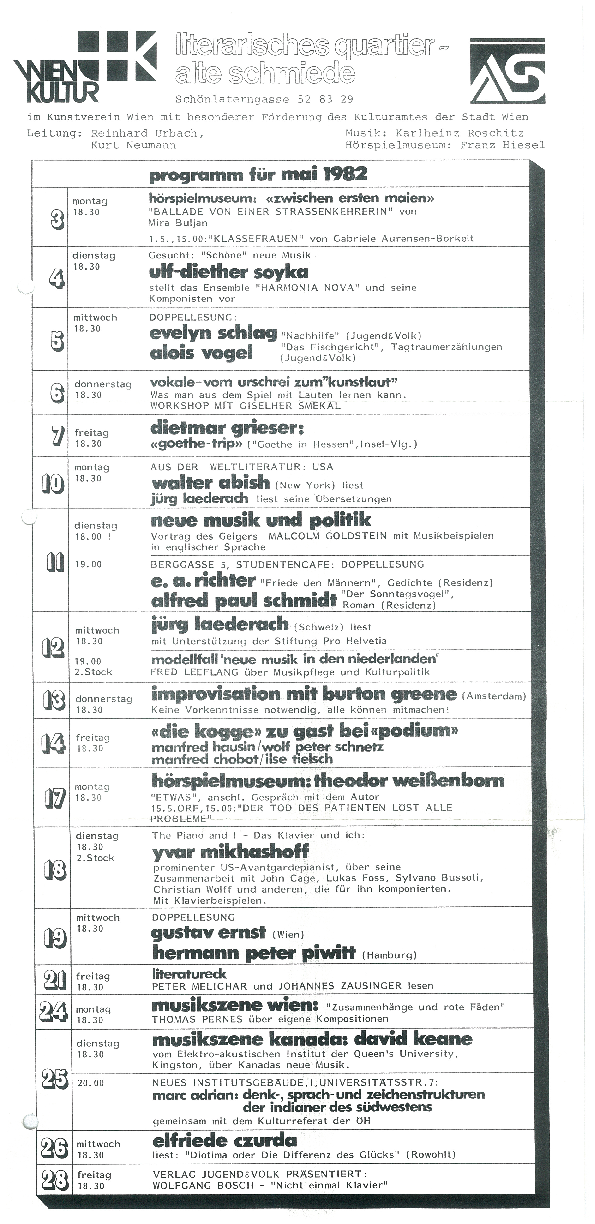 WIEN KULTUR
literarisches quartier -
alte schmiede
AS
Schönlaterngasse 52 83 29
im Kunstverein Wien mit besonderer Förderung des Kulturamtes der Stadt Wien
Leitung: Reinhard Urbach,
Kurt Neumann
Musik: Karlheinz Roschitz
Hörspielmuseum: Franz Hiesel
programm für mai 1982
3 montag 18.30
hörspielmuseum: «zwischen ersten maien»
"BALLADE VON EINER STRASSENKEHRERIN" von
Mira Buljan
1.5.,15.00:"KLASSEFRAUEN" von Gabriele Aurensen-Borkelt
4 dienstag 18.30
Gesucht: "Schöne" neue Musik
ulf-diether soyka
stellt das Ensemble "HARMONIA NOVA" und seine
Komponisten vor
5 mittwoch 18.30
DOPPELLESUNG:
evelyn schlag "Nachhilfe" (Jugend&Volk)
alois vogel "Das Fischgericht", Tagtraumerzählungen
(Jugend&Volk)
6 donnerstag 18.30
vokale-vom urschrei zum"kunstlaut"
Was man aus dem Spiel mit Lauten lernen kann.
WORKSHOP MIT GISELHER SMEKAL
7 freitag 18.30
dietmar grieser:
«goethe-trip» ("Goethe in Hessen",Insel-Vlg.)
10 montag 18.30
AUS DER WELTLITERATUR: USA
walter abish (New York) liest
jürg laederach liest seine Übersetzungen
11 dienstag 18.00 !
neue musik und politik
Vortrag des Geigers MALCOLM GOLDSTEIN mit Musikbeispielen
in englischer Sprache
19.00
BERGGASSE 5, STUDENTENCAFE: DOPPELLESUNG
e. a. richter "Friede den Männern", Gedichte (Residenz)
alfred paul schmidt "Der Sonntagsvogel",
Roman (Residenz)
12 mittwoch 18.30
jürg laederach (Schweiz) liest
mit Unterstützung der Stiftung Pro Helvetia
19.00 2.Stock
modellfall 'neue musik in den niederlanden'
FRED LEEFLANG über Musikpflege und Kulturpolitik
13 donnerstag 18.30
improvisation mit burton greene (Amsterdam)
Keine Vorkenntnisse notwendig, alle können mitmachen!
14 freitag 18.30
«die kogge» zu gast bei «podium»
manfred hausin/wolf peter schnetz
manfred chobot/ilse tielsch
17 montag 18.30
hörspielmuseum: theodor weißenborn
"ETWAS", anschl. Gespräch mit dem Autor
15.5.ORF,15.00:"DER TOD DES PATIENTEN LÖST ALLE
PROBLEME"
18 dienstag 18.30 2.Stock
The Piano and I - Das Klavier und ich:
yvar mikhashoff
prominenter US-Avantgardepianist, über seine
Zusammenarbeit mit John Cage, Lukas Foss, Sylvano Bussoli,
Christian Wolff und anderen, die für ihn komponierten.
Mit Klavierbeispielen.
19 mittwoch 18.30
DOPPELLESUNG
gustav ernst (Wien)
hermann peter piwitt (Hamburg)
21 freitag 18.30
literatureck
PETER MELICHAR und JOHANNES ZAUSINGER lesen
24 montag 18.30
musikszene wien: "Zusammenhänge und rote Fäden"
THOMAS PERNES über eigene Kompositionen
25 dienstag 18.30
musikszene kanada: david keane
vom Elektro-akustischen Institut der Queen's University,
Kingston, über Kanadas neue Musik.
20.00
NEUES INSTITUTSGEBÄUDE,I,UNIVERSITÄTSSTR.7:
marc adrian: denk-, sprach-und zeichenstrukturen
der indianer des südwestens
gemeinsam mit dem Kulturreferat der ÖH
26 mittwoch 18.30
elfriede czurda
liest: "Diotima oder Die Differenz des Glücks" (Rowohlt)
28 freitag 18.30
VERLAG JUGEND&VOLK PRÄSENTIERT:
WOLFGANG BOSCH - "Nicht einmal Klavier"